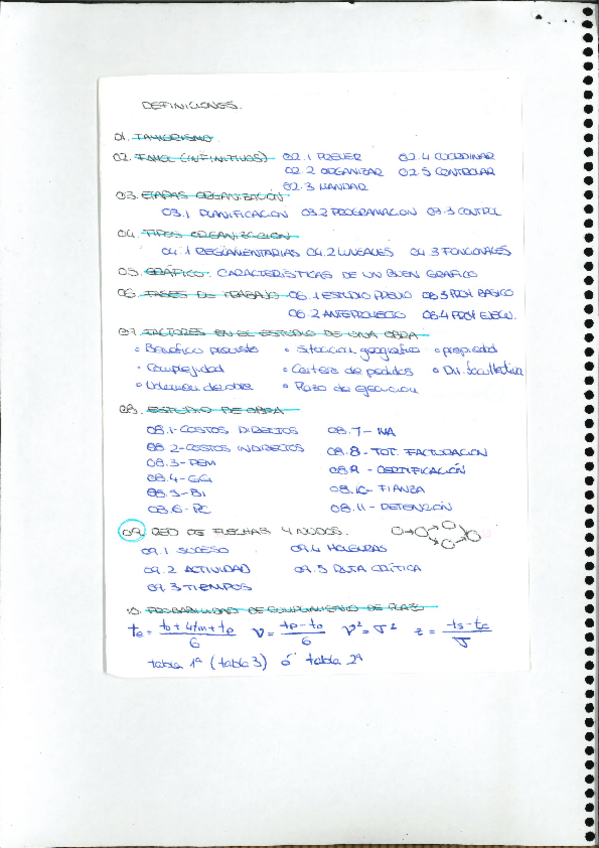 DEFINICIONES.
01. TAYLORISMO
02. FAYOL (INFINITIVOS) 02.1 PREVER 02.4 COORDINAR
02.2 ORGANIZAR 02.5 CONTROLAR
02.3 MANDAR
03. ETAPAS ORGANIZACIÓN
03.1 PLANIFICACION 03.2 PROGRAMACION 03.3 CONTROL
04. TIPOS ORGANIZACION
04.1 REGLAMENTARIAS 04.2 LINEALES 04.3 FUNCIONALES
05. GRÁFICO. CARACTERÍSTICAS DE UN BUEN GRAFICO
06. FASES DE TRABAJO 06.1 ESTUDIO PREVIO 06.3 PROY BASICO
06.2 ANTEPROYECTO 06.4 PROY EJECU.
07. FACTORES EN EL ESTUDIO DE UNA OBRA
• Beneficio previsto • Situacion geografica • propiedad
• Complejidad • Cartera de pedidos • Dir. facultativa
• Volumen de obra • Plazo de ejecucion
08. ESTUDIO DE OBRA
08.1- COSTOS DIRECTOS 08.7- IVA
08.2- COSTOS INDIRECTOS 08.8- TOT. FACTURACION
08.3- PEM 08.9- CERTIFICACIÓN
08.4- GG 08.10- FIANZA
08.5- BI 08.11- RETENCIÓN
08.6- PC
09. RED DE FLECHAS Y NUDOS.
09.1 SUCESO 09.4 HOLGURAS
09.2 ACTIVIDAD 09.5 RUTA CRÍTICA
09.3 TIEMPOS
10. PROBABILIDAD DE CUMPLIMIENTO DE PLAZO
te = (to + 4tm + tp)/6 V = (tp - to)/6 V² = σ² z = (ts - te)/σ
tabla 1ª (tabla 3) ó tabla 2ª